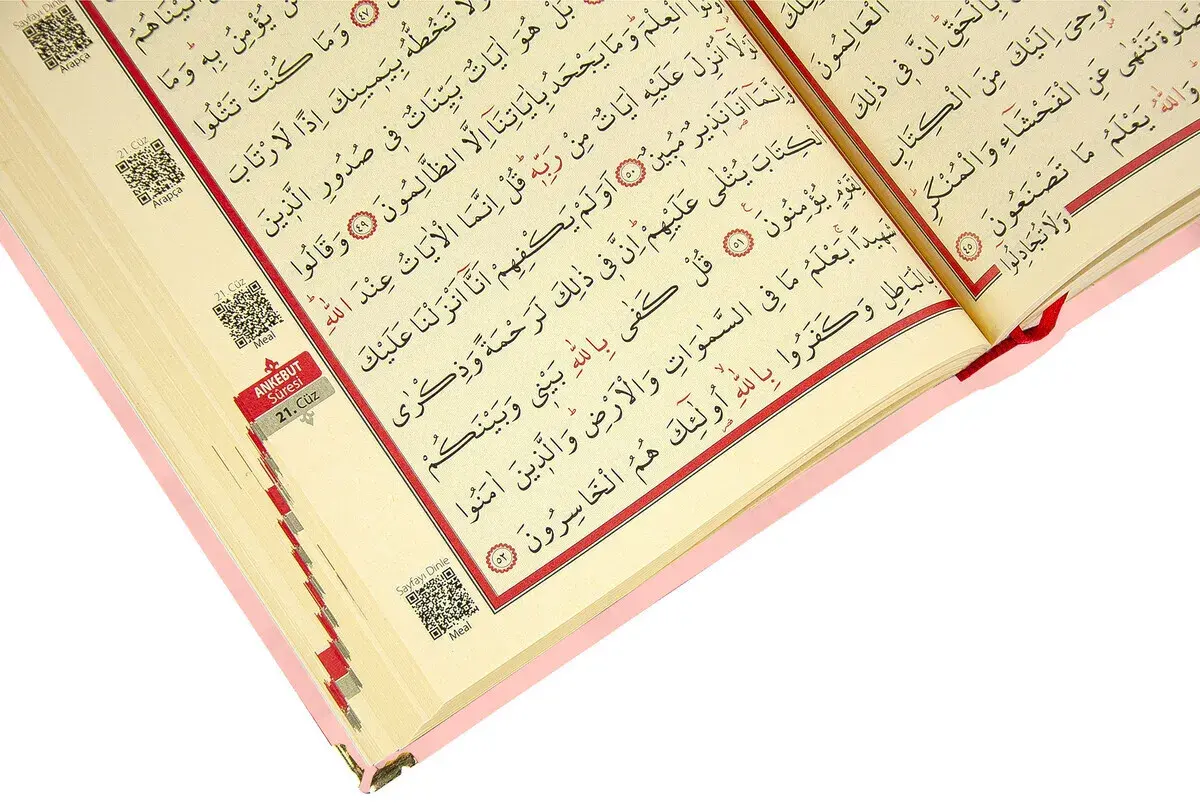 الْعَالِمُونَ
بِالْحَقِّ اِنَّ فٖى ذٰلِكَ
اُوحِىَ اِلَيْكَ مِنَ الْكِتَابِ
تَنْهٰى عَنِ الْفَحْشَٓاءِ وَالْمُنْكَرِ
وَاللّٰهُ يَعْلَمُ مَا تَصْنَعُونَ ٤٥
وَلَا تُجَادِلُوا
اٰتَيْنَاهُمُ
يُؤْمِنُ بِهٖ وَمَا
٤٧ وَمَا كُنْتَ تَتْلُوا
وَلَا تَخُطُّهُ بِيَمٖينِكَ اِذًا لَارْتَابَ
بَلْ هُوَ اٰيَاتٌ بَيِّنَاتٌ فٖى صُدُورِ الَّذٖينَ
الْعِلْمَ وَمَا يَجْحَدُ بِاٰيَاتِنَٓا اِلَّا الظَّالِمُونَ ٤٩ وَقَالُوا
لَوْلَٓا اُنْزِلَ عَلَيْهِ اٰيَاتٌ مِنْ رَبِّهٖ قُلْ اِنَّمَا الْاٰيَاتُ عِنْدَ اللّٰهِ
وَاِنَّمَٓا اَنَا نَذٖيرٌ مُبٖينٌ ٥٠ اَوَلَمْ يَكْفِهِمْ اَنَّٓا اَنْزَلْنَا عَلَيْكَ
الْكِتَابَ يُتْلٰى عَلَيْهِمْ اِنَّ فٖى ذٰلِكَ لَرَحْمَةً وَذِكْرٰى
لِقَوْمٍ يُؤْمِنُونَ ٥١ قُلْ كَفٰى بِاللّٰهِ بَيْنٖى وَبَيْنَكُمْ
شَهٖيدًا يَعْلَمُ مَا فِى السَّمٰوَاتِ وَالْاَرْضِ وَالَّذٖينَ اٰمَنُوا
بِالْبَاطِلِ وَكَفَرُوا بِاللّٰهِ اُو۬لٰٓئِكَ هُمُ الْخَاسِرُونَ ٥٢
Sayfayı Dinle
Arapça
21. Cüz
Arapça
21. Cüz
Meal
ANKEBUT
Sûresi
21. Cüz
Sayfayı Dinle
Meal